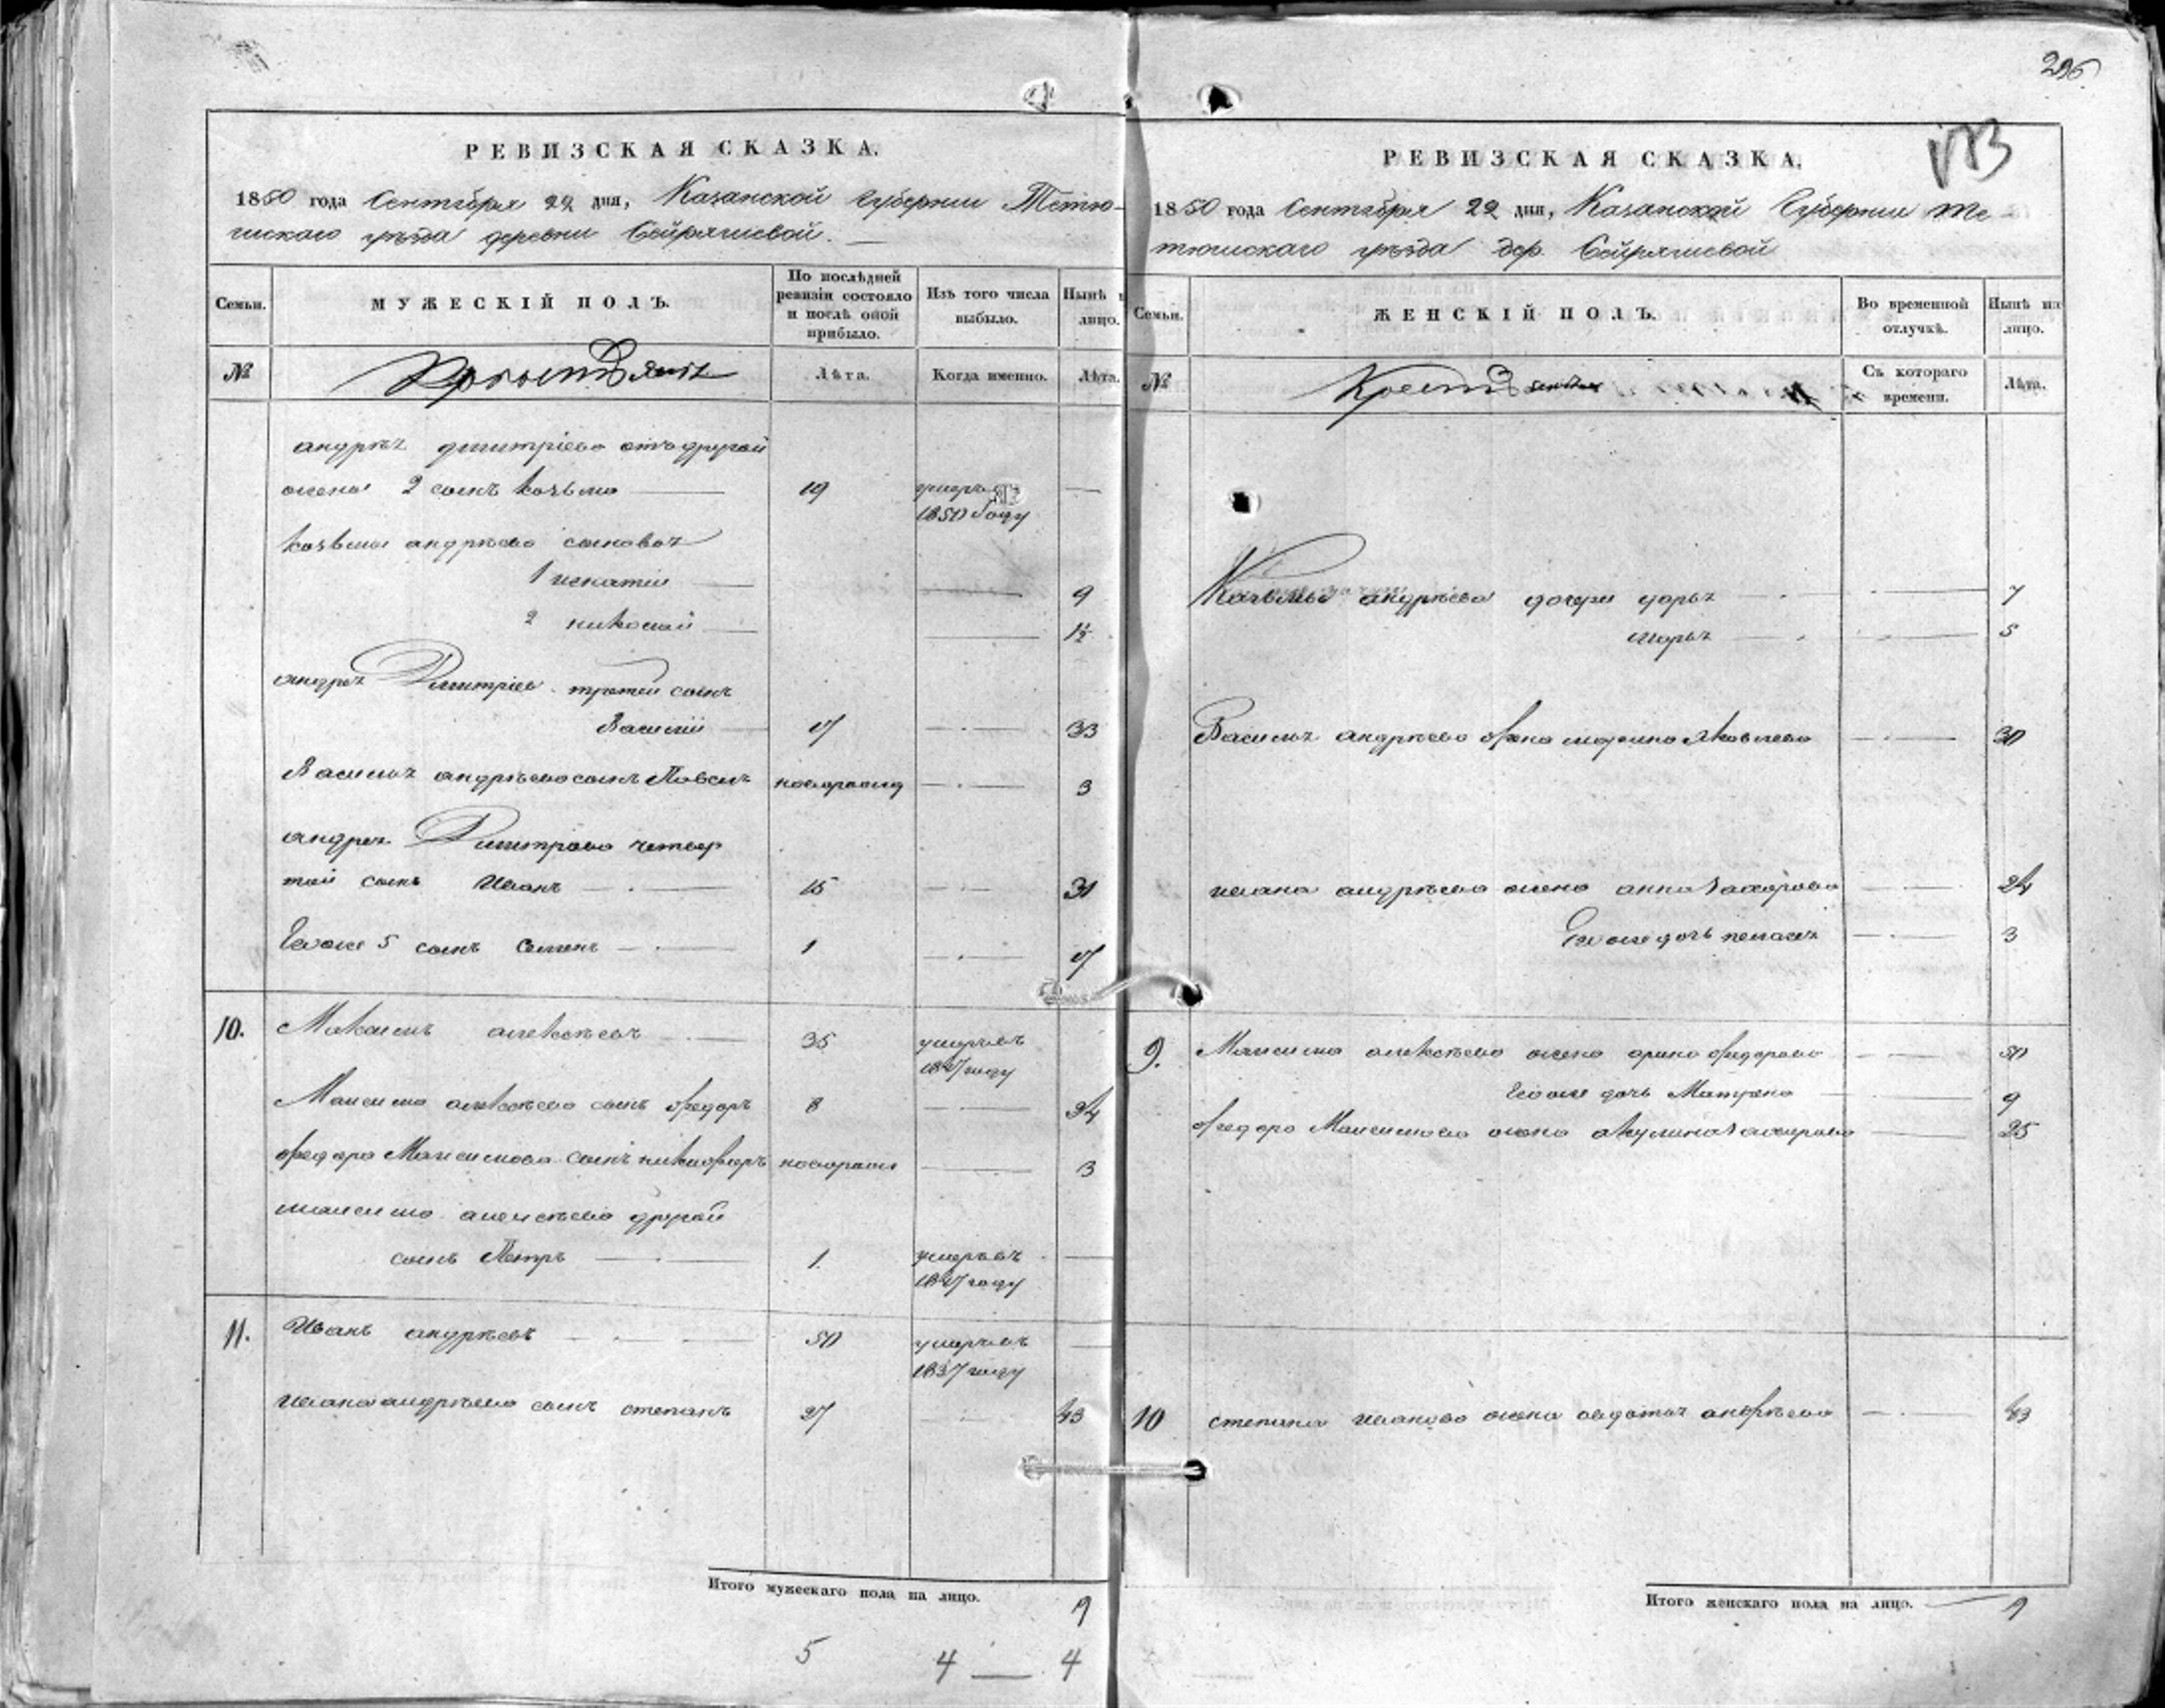 296
173
РЕВИЗСКАЯ СКАЗКА.
1850 года Сентября 22 дня, Казанской Губернии Тетю-
шскаго уѣзда деревни
Семьи.
МУЖЕСКІЙ ПОЛЪ.
По послѣдней ревизіи состояло и послѣ оной прибыло.
Изъ того числа выбыло.
Нынѣ на лицо.
№
Лѣта.
Когда именно.
Лѣта.
андрея дмитріева отъ другой
жены 2 сынъ козьма 19 умеръ —
1850 году
козьмы андрѣева сыновья
1 9
2 николай 1½
андрея Дмитріева третей сынъ
Василій 17 33
Василья андрѣева сынъ Павелъ 3
андрея Дмитріева четвер
той сынъ Иванъ 15 31
Евоже 5 сынъ Семенъ 1 17
10. Максимъ алексѣевъ 35 умеръ въ
1847 году
Максима алексѣева сынъ федоръ 8 24
федора Максимова сынъ никифоръ 3
максима алексѣева другой
сынъ Петръ 1 умеръ въ —
1847 году
11. Иванъ андрѣевъ 50 умеръ въ —
1837 году
ивана андрѣева сынъ степанъ 27 43
Итого мужескаго пола на лицо. 9
5 4 — 4
РЕВИЗСКАЯ СКАЗКА.
1850 года Сентября 22 дня, Казанской Губернии Те-
тюшскаго уѣзда дер.
Семьи.
ЖЕНСКІЙ ПОЛЪ.
Во временной отлучкѣ.
Нынѣ на лицо.
№
Съ котораго времени.
Лѣта.
Козьмы андрѣева дочери дарья 7
марья 5
Василья андрѣева жена марина Яковлева 30
ивана андрѣева жена анна захарова 24
Евоже дочь пелагея 3
9. Максима алексѣева жена арина федорова 50
Евоже дочь Матрена 9
федора Максимова жена акулина захарова 25
10 степана иванова жена авдотья андрѣева 43
Итого женскаго пола на лицо. 9